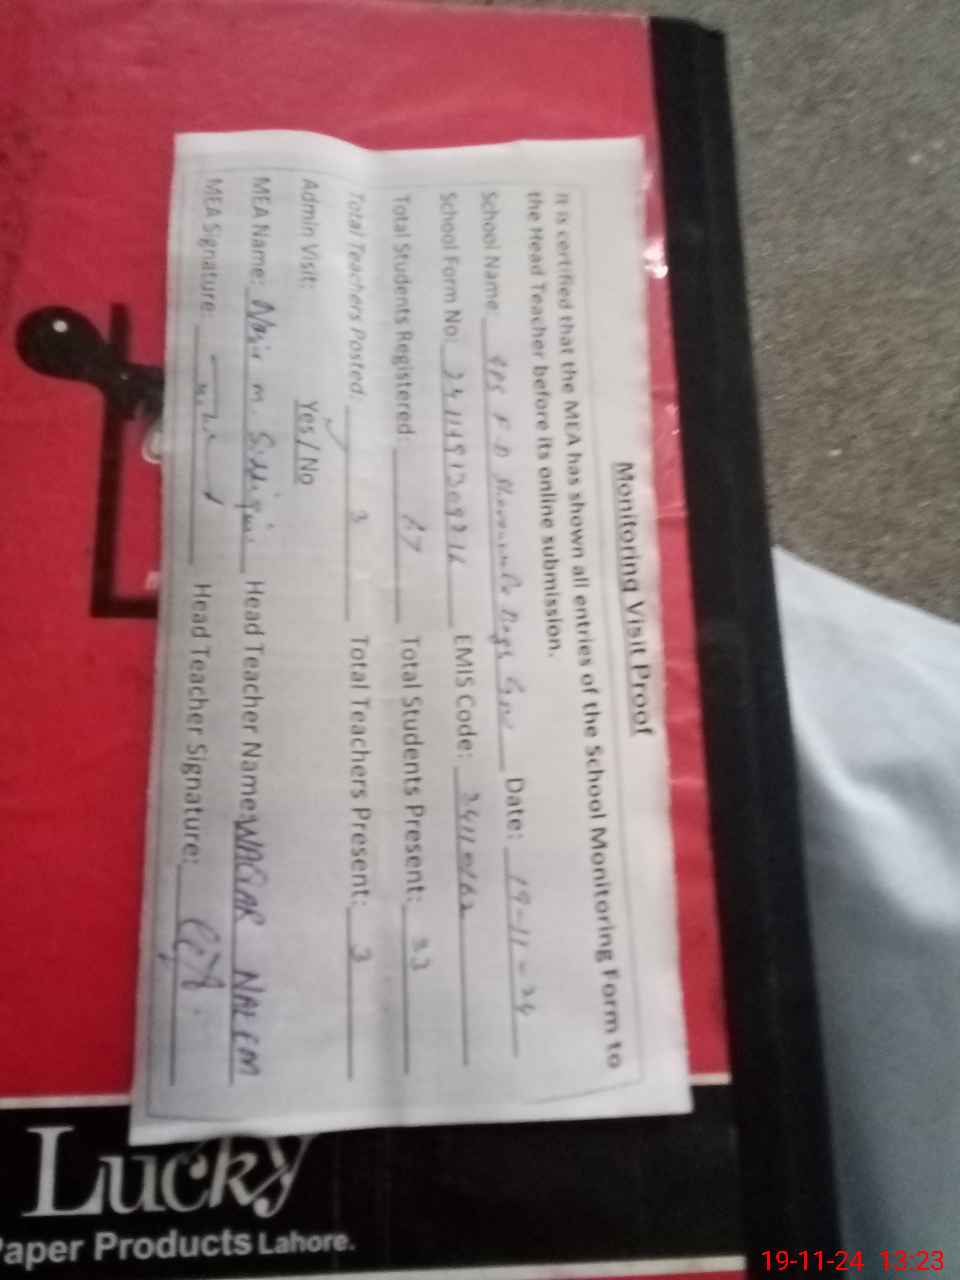 Monitoring Visit Proof
It is certified that the MEA has shown all entries of the School Monitoring Form to
the Head Teacher before its online submission.
School Name: GPS Date: 19-11-24
School Form No: EMIS Code:
Total Students Registered: Total Students Present: 33
Total Teachers Posted: 3 Total Teachers Present: 3
Admin Visit: Yes / No
MEA Name: M. Siddiqui Head Teacher Name: WAQAR NAEEM
MEA Signature: Head Teacher Signature:
Lucky
Paper Products Lahore.
19-11-24 13:23